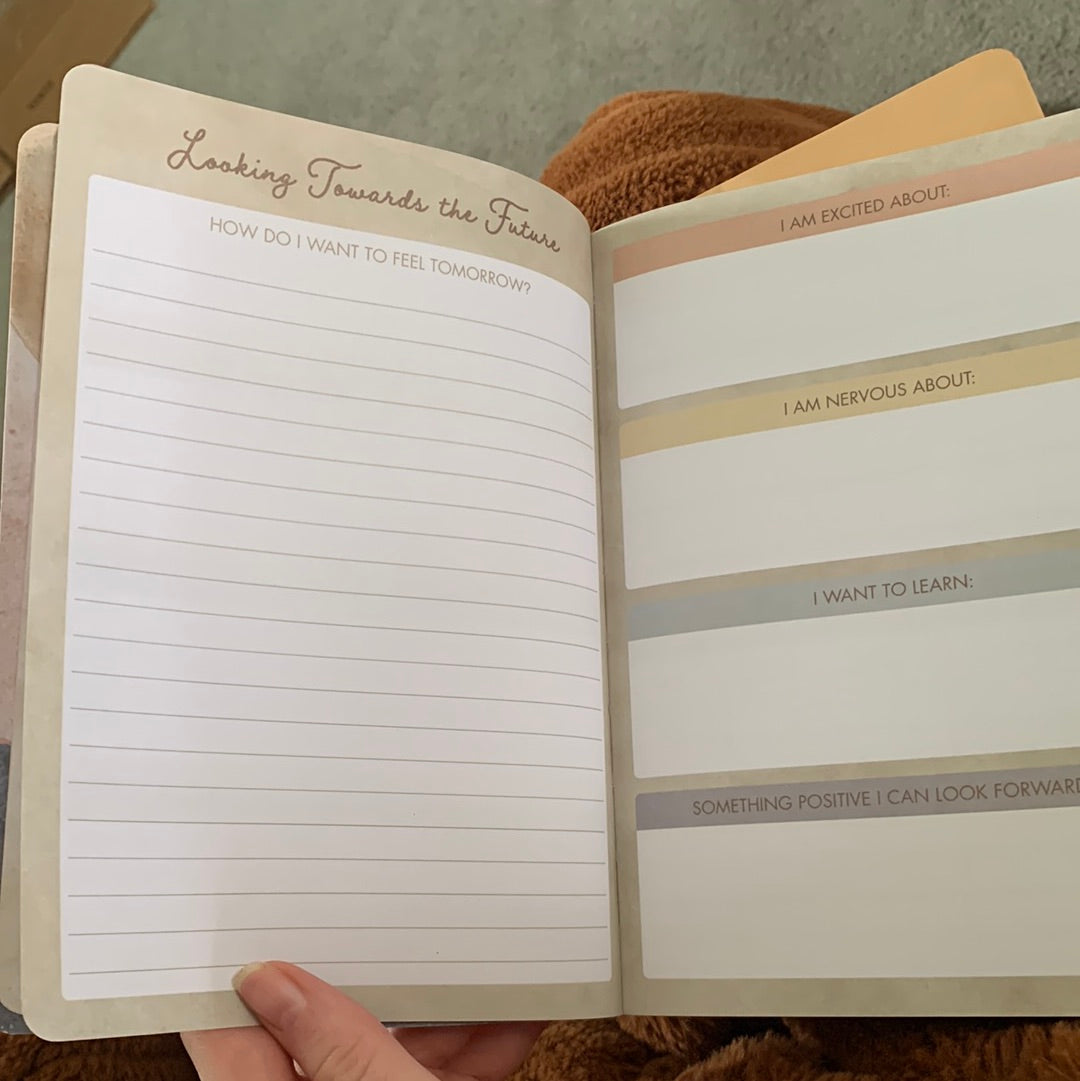 Looking Towards the Future
HOW DO I WANT TO FEEL TOMORROW?
I AM EXCITED ABOUT:
I AM NERVOUS ABOUT:
I WANT TO LEARN:
SOMETHING POSITIVE I CAN LOOK FORWARD